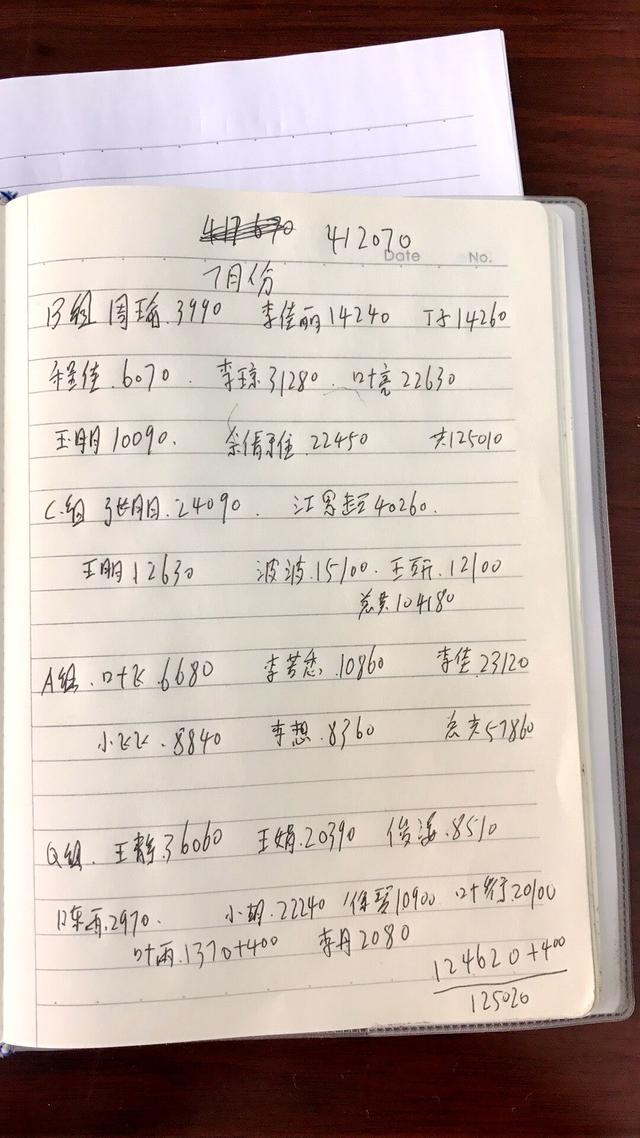 412070
Date No.
7月份
B组 周瑜.3990 李佳丽14240 丁子14260
程佳.6070. 李琼31280. 叶亮22630
王朋10090. 22450 共125010
C.组 张朋.24090. 江思超40260.
王明12630 波波.15100. 王研.12100
总共104180
A组.叶飞.6680 李若悉.10860 李佳.23120
小飞飞.8840 李想.8360 总共57860
Q组.王静36060 王娟.20390 俊海.8510
陈雨.2970. 小胡.22240 10900 20100
叶雨.1370+400 李丹2080
124620+400
125020